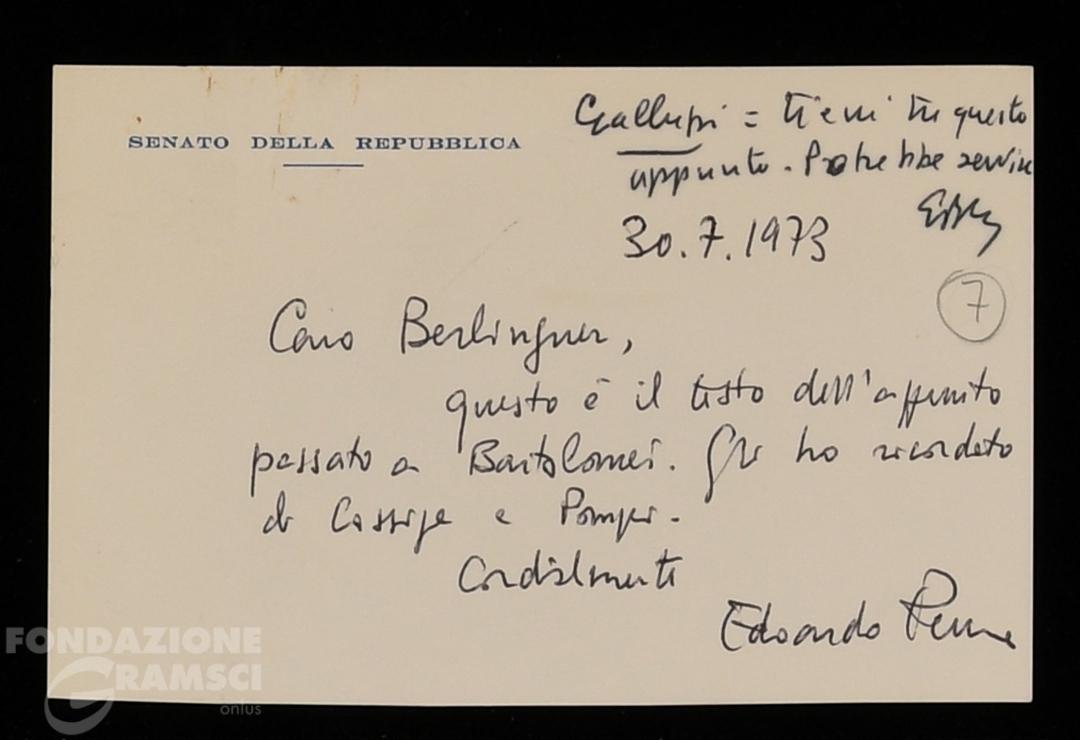 SENATO DELLA REPUBBLICA
Gallupi = tieni tu questo
appunto. Potrebbe servire
30.7.1973
7
Caro Berlinguer,
questo è il testo dell'appunto
passato a Bartolomei. Gli ho ricordato
di e Pompei.
Cordialmente
Edoardo Perna
FONDAZIONE
GRAMSCI
onlus